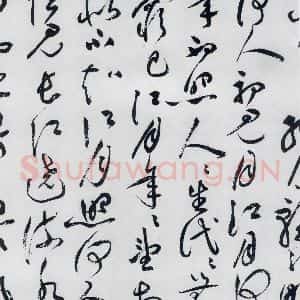 何人初見月江月何
年初照人々生代々無
窮已江月年々望相
似不知江月照何人
但見長江送流水
Shufawang.CN